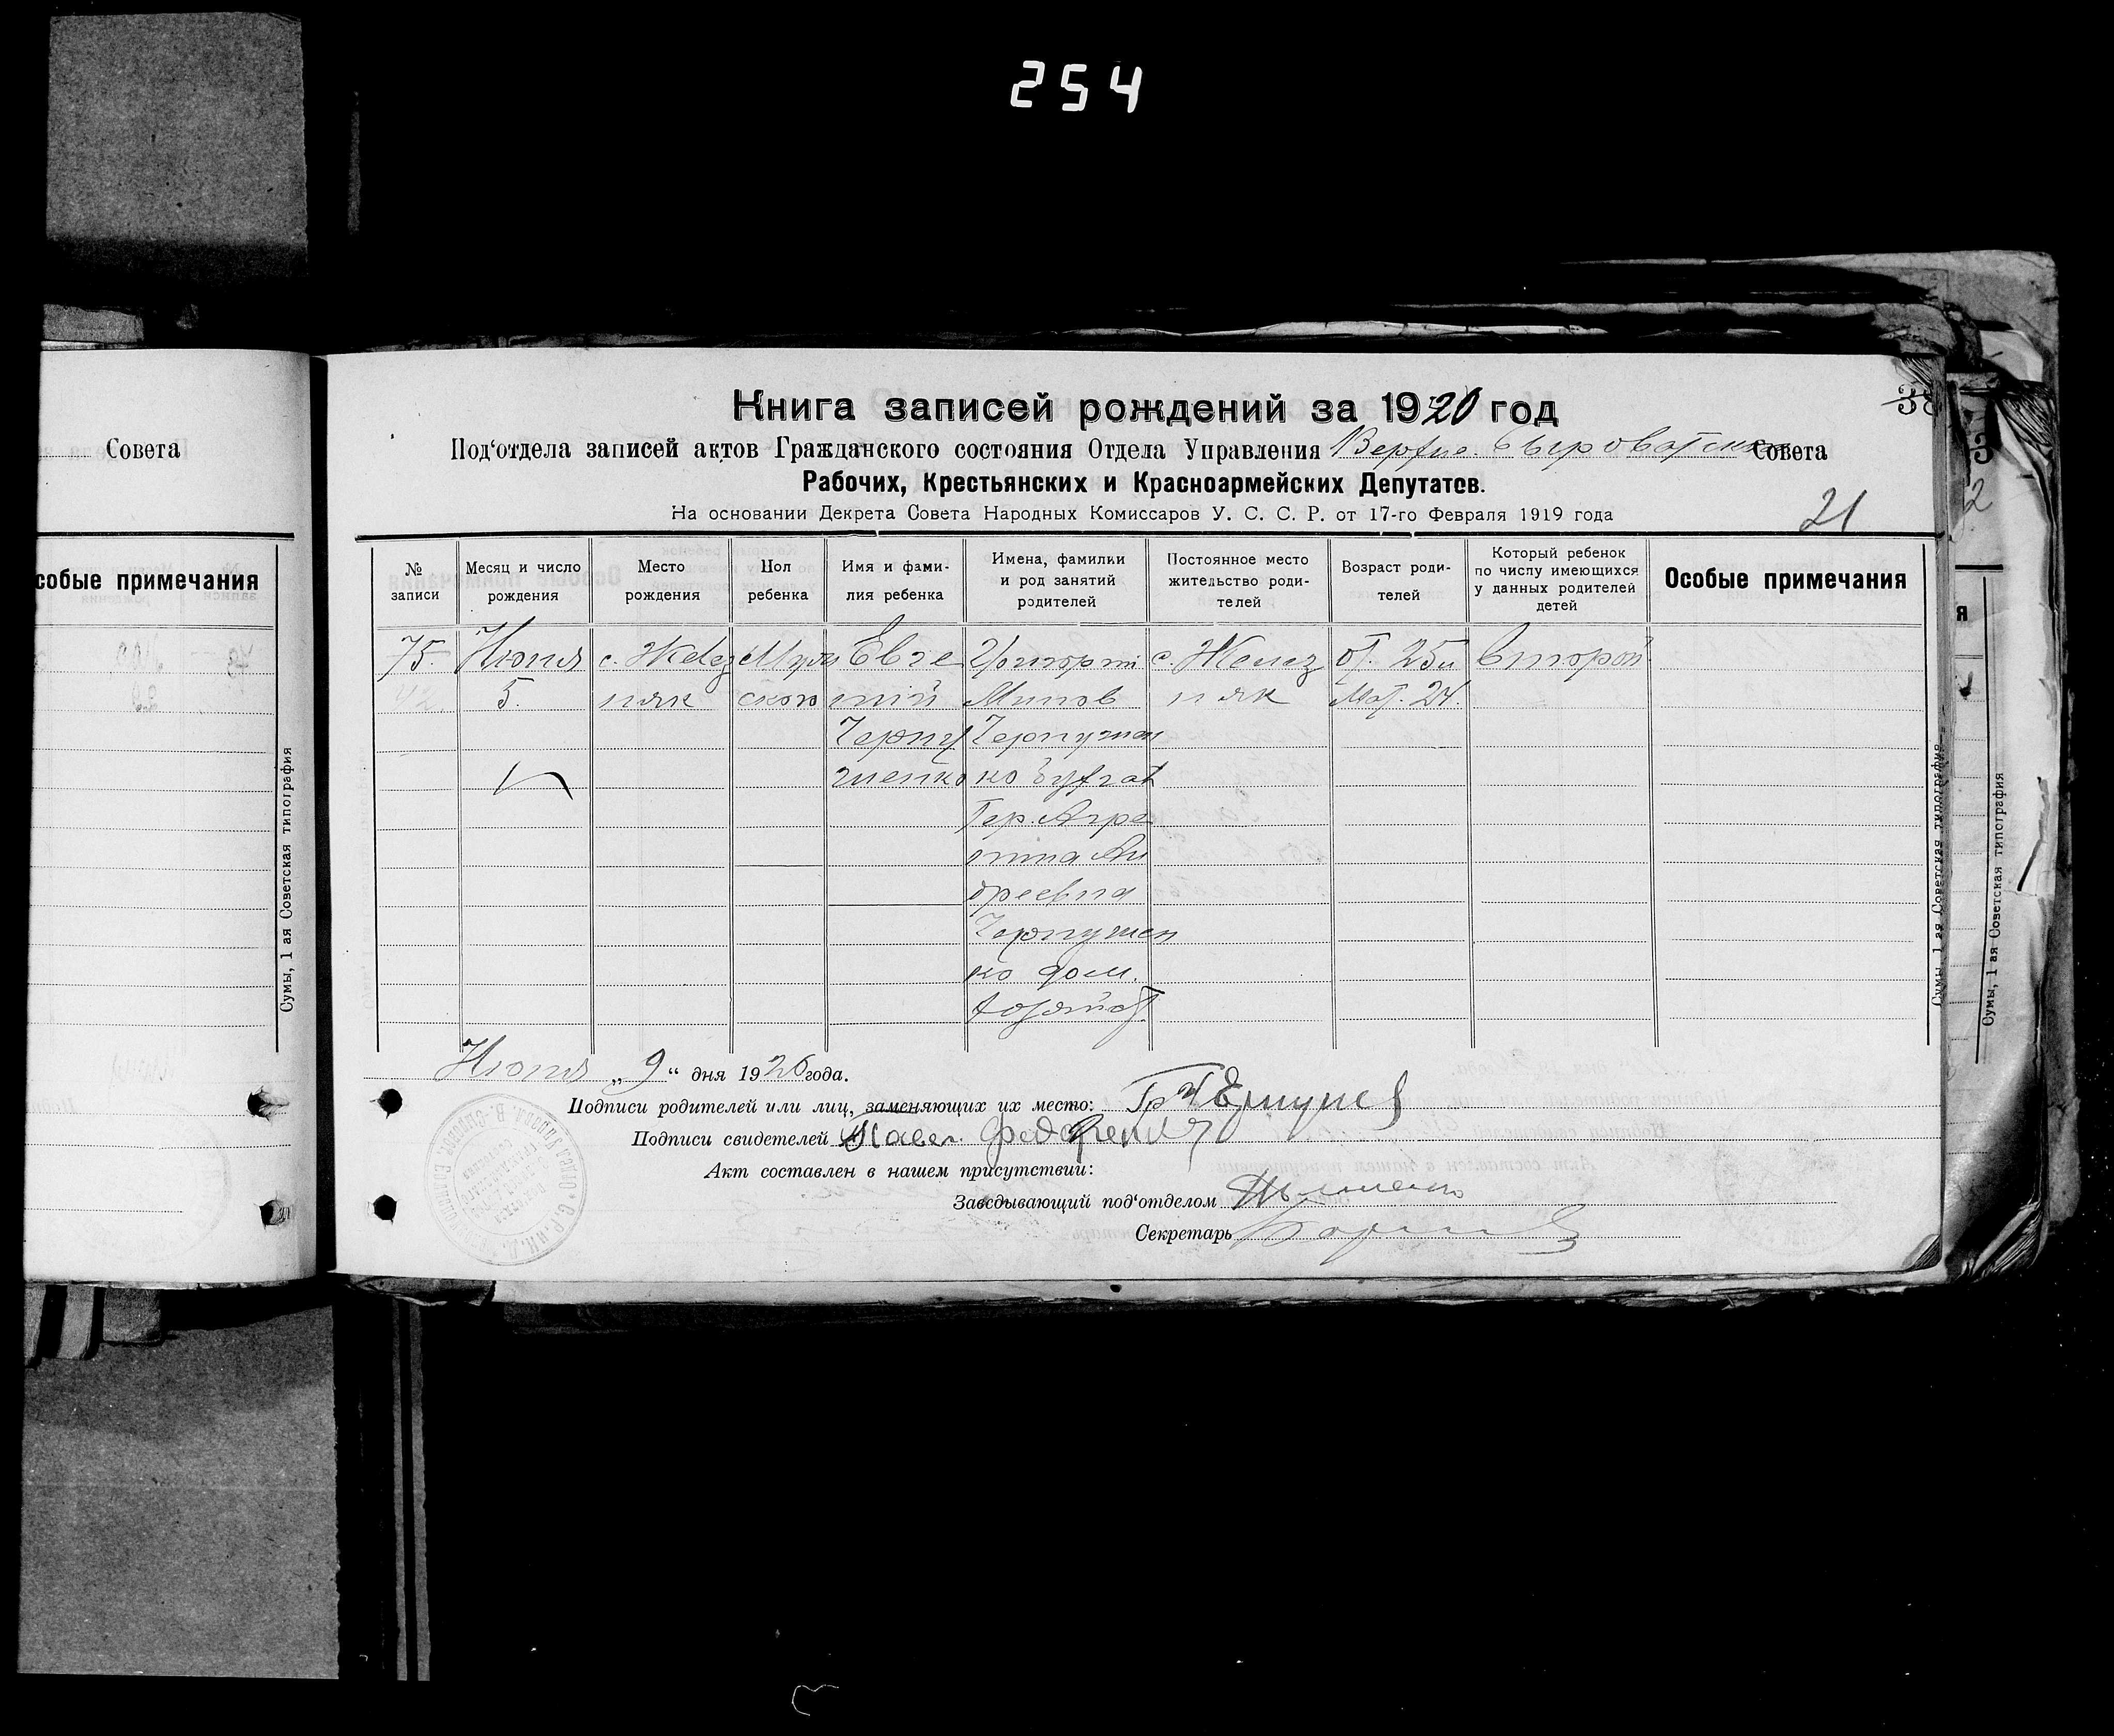 254
Совета
собые примечания
Сумы, 1 ая Советская типография
38
Книга записей рождений за 1920 год
Под‘отдела записей актов Гражданского состояния Отдела Управления Верхне. Сыроватского Совета
Рабочих, Крестьянских и Красноармейских Депутатов.
На основании Декрета Совета Народных Комиссаров У. С. С. Р. от 17-го Февраля 1919 года
21
№ записи
Месяц и число рождения
Место рождения
Пол ребенка
Имя и фами-
лия ребенка
Имена, фамилии
и род занятий
родителей
Постоянное место
жительство роди-
телей
Возраст роди-
телей
Который ребенок
по числу имеющихся
у данных родителей
детей
Особые примечания
75. Июня с. Желез Муж Евге Григорій с. Желез от. 25 и второй
5. няк ской ній няк Мат. 24.
Черну Чернушен
шенко ко бухгал
Тер. Агре
пина Ан
дреевна
Чернушен
ко дом.
хозяйст
Июня „9“ дня 1920 года.
Подписи родителей или лиц, заменяющих их место: Гр
Подписи свидетелей Павел
Акт составлен в нашем присутствии:
Заведывающий под‘отделом
Секретарь
Сумы, 1 ая Советская типография
я
Сумы, 1 ая Советская типография